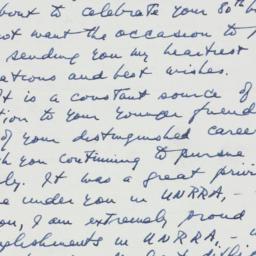 about to celebrate your 80th b
not want the occassion to
sending you my heartiest
ations and best wishes.
It is a constant source of
tion to your younger friend
of your distinguished caree
h you continuing to pursue
ly. It was a great privi
e under you in UNRRA, -
ou, I am extremely proud
mplishments in UNRRA, -